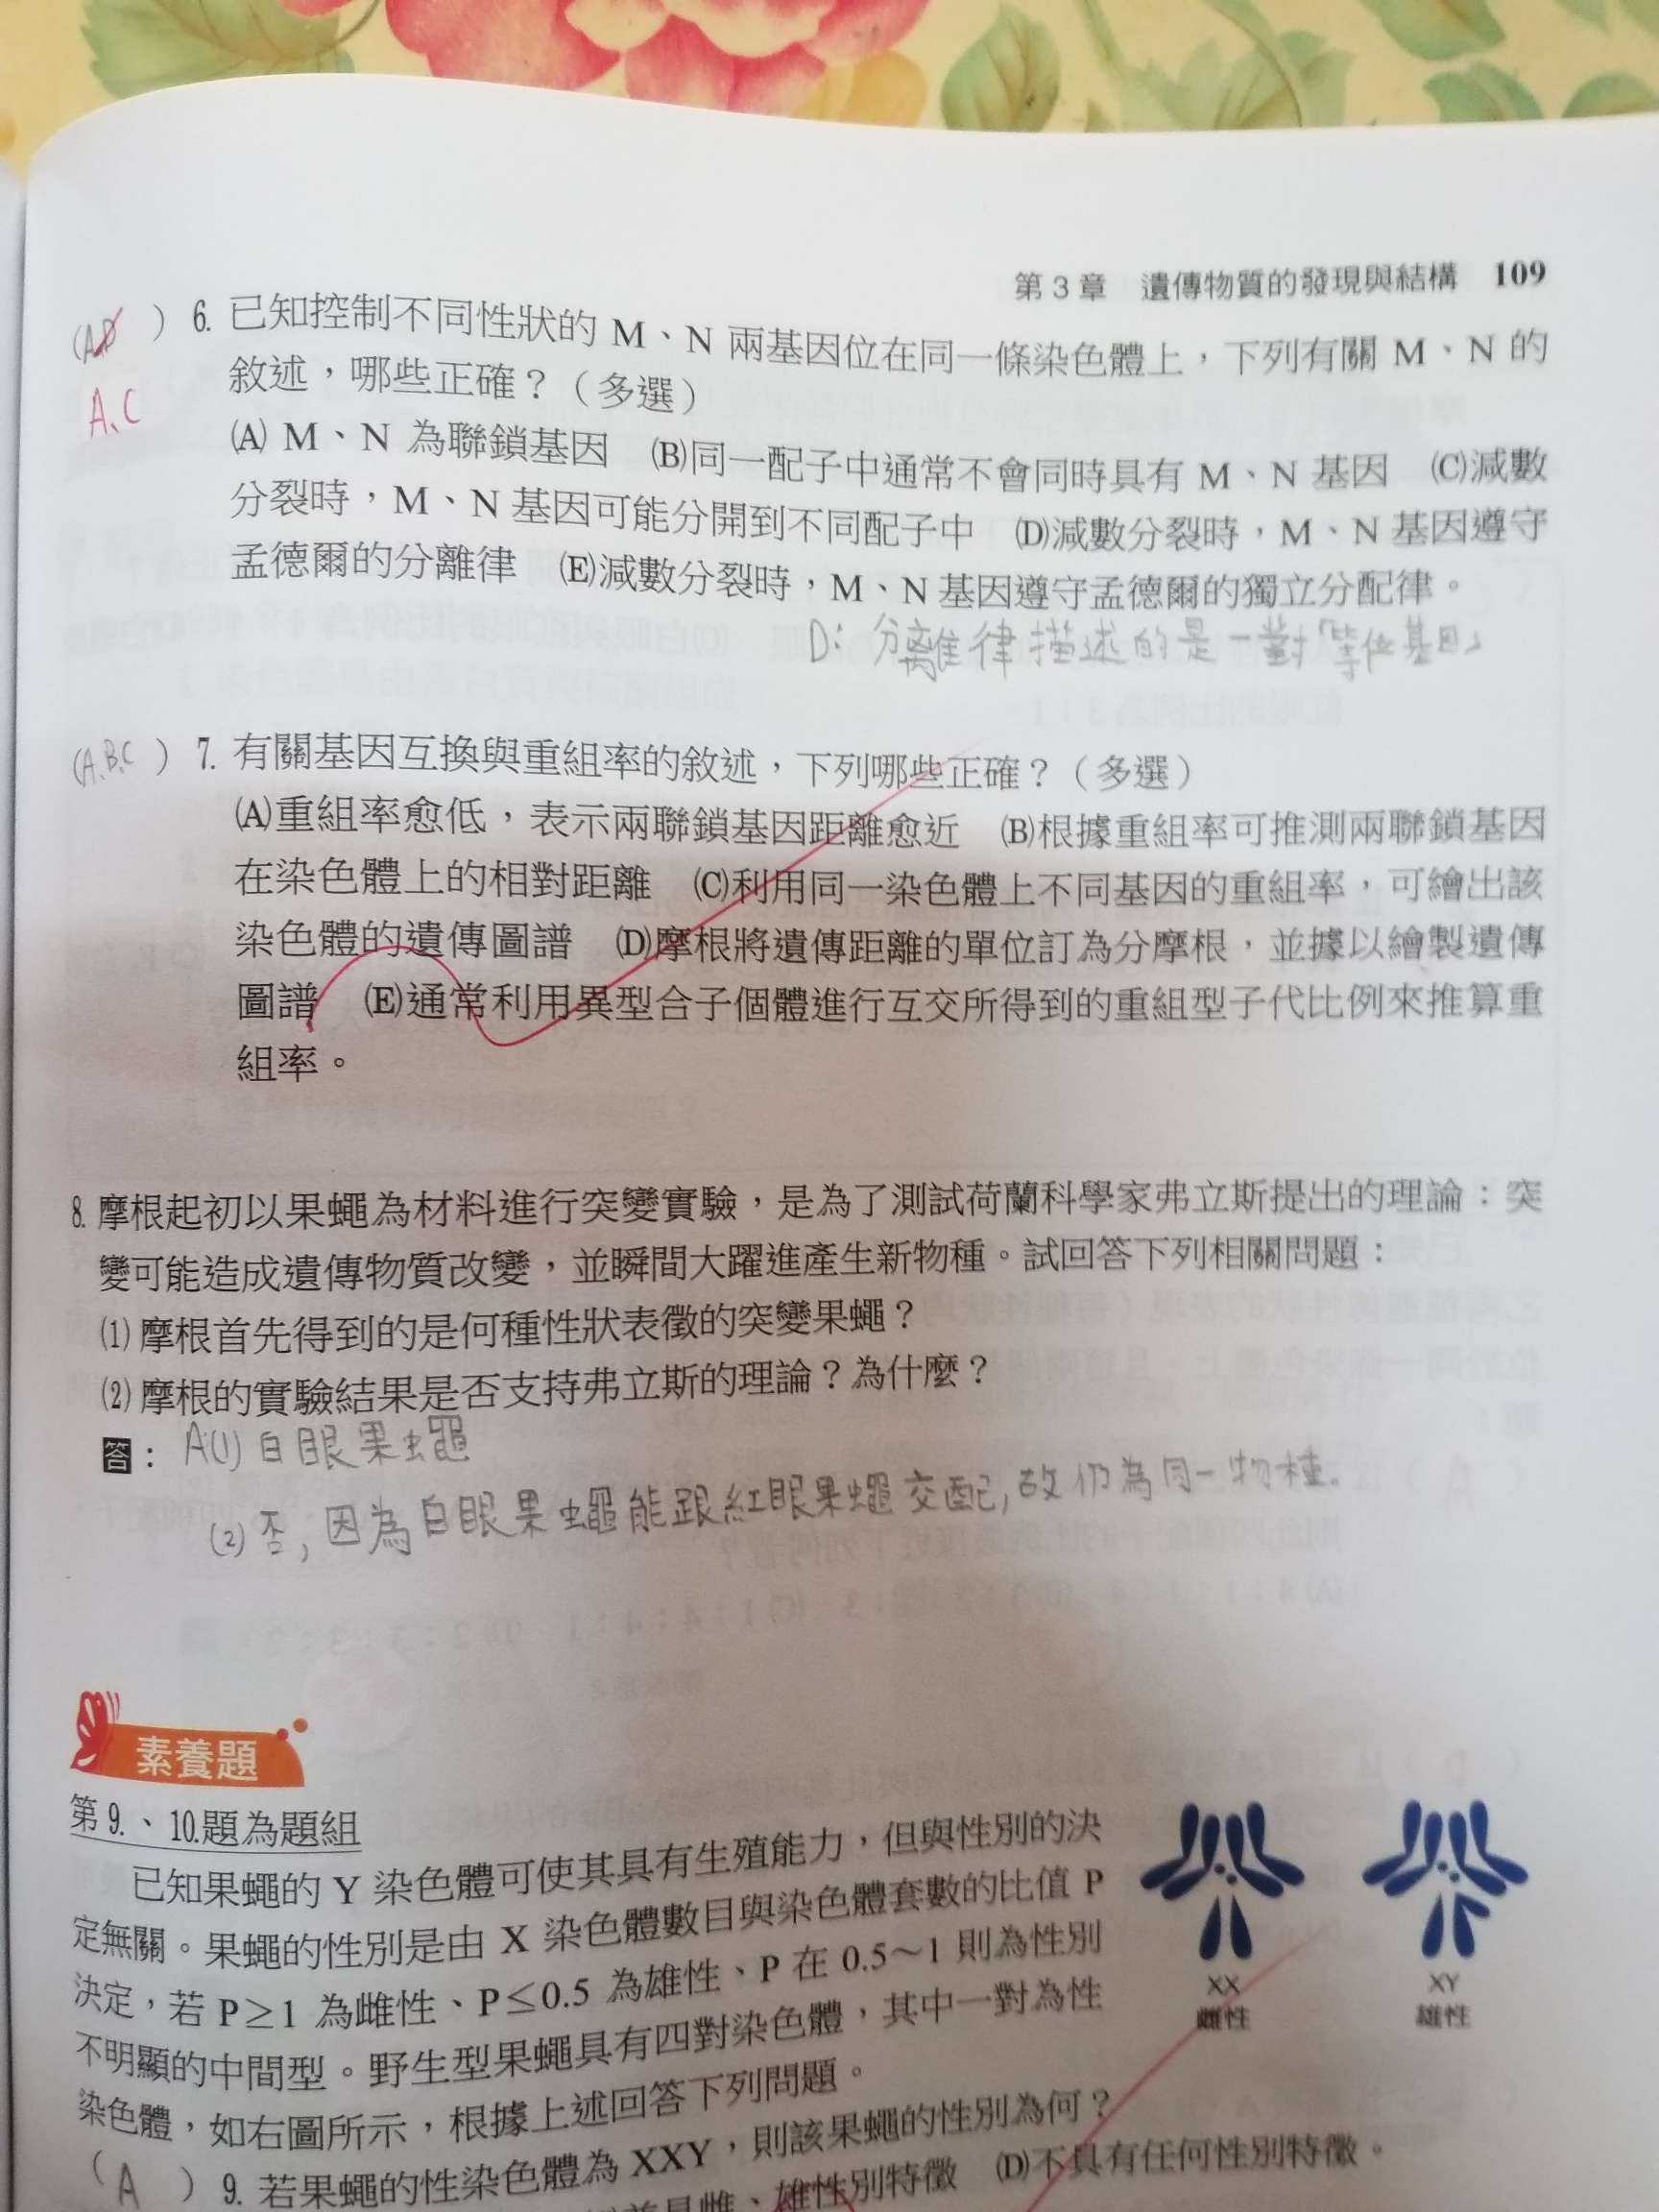 第3章 遺傳物質的發現與結構 109
(A,D ) 6. 已知控制不同性狀的 M、N 兩基因位在同一條染色體上，下列有關 M、N 的
A、C 敘述，哪些正確？（多選）
(A) M、N 為聯鎖基因 (B)同一配子中通常不會同時具有 M、N 基因 (C)減數
分裂時，M、N 基因可能分開到不同配子中 (D)減數分裂時，M、N 基因遵守
孟德爾的分離律 (E)減數分裂時，M、N 基因遵守孟德爾的獨立分配律。
D：分離律描述的是一對「等位基因」
(A、B、C ) 7. 有關基因互換與重組率的敘述，下列哪些正確？（多選）
(A)重組率愈低，表示兩聯鎖基因距離愈近 (B)根據重組率可推測兩聯鎖基因
在染色體上的相對距離 (C)利用同一染色體上不同基因的重組率，可繪出該
染色體的遺傳圖譜 (D)摩根將遺傳距離的單位訂為分摩根，並據以繪製遺傳
圖譜 (E)通常利用異型合子個體進行互交所得到的重組型子代比例來推算重
組率。
8. 摩根起初以果蠅為材料進行突變實驗，是為了測試荷蘭科學家弗立斯提出的理論：突
變可能造成遺傳物質改變，並瞬間大躍進產生新物種。試回答下列相關問題：
(1) 摩根首先得到的是何種性狀表徵的突變果蠅？
(2) 摩根的實驗結果是否支持弗立斯的理論？為什麼？
答： A(1) 白眼果蠅
(2) 否，因為白眼果蠅能跟紅眼果蠅交配，故仍為同一物種.
素養題
第 9.、10.題為題組
已知果蠅的 Y 染色體可使其具有生殖能力，但與性別的決
定無關。果蠅的性別是由 X 染色體數目與染色體套數的比值 P
決定，若 P≥1 為雌性、P≤0.5 為雄性、P 在 0.5～1 則為性別
不明顯的中間型。野生型果蠅具有四對染色體，其中一對為性
染色體，如右圖所示，根據上述回答下列問題。
XX XY
雌性 雄性
( A ) 9. 若果蠅的性染色體為 XXY，則該果蠅的性別為何？
雌、雄性別特徵 (D)不具有任何性別特徵。